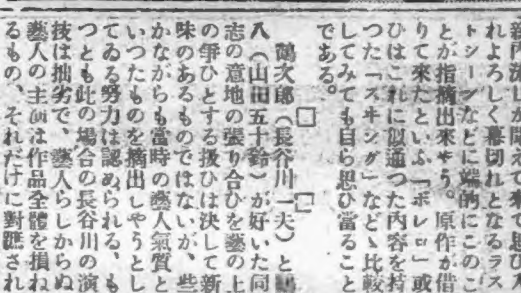 新内流しが聞えて来て思ひ入
れよろしく幕切れとなるラス
トシーンなどに端的にこのこ
とが指摘出來やう。原作が借
りて來たといふ「ボレロ」或
ひはこれに似通つた内容を持
つた「スヰング」などゝ比較
してみても自ら思ひ當ること
である。
□ □
鶴次郎（長谷川一夫）と鶴
八（山田五十鈴）が好いた同
志の意地の張り合ひを藝の上
の爭ひとする扱ひは決して新
味のあるものではないが、些
かながらも當時の藝人氣質と
いつたものを摘出しやうとし
てゐる努力は認められる、も
つとも此の場合の長谷川の演
技は拙劣で、藝人らしからぬ
藝人の主演は作品全體を損ね
るもの、それだけに對蹠され